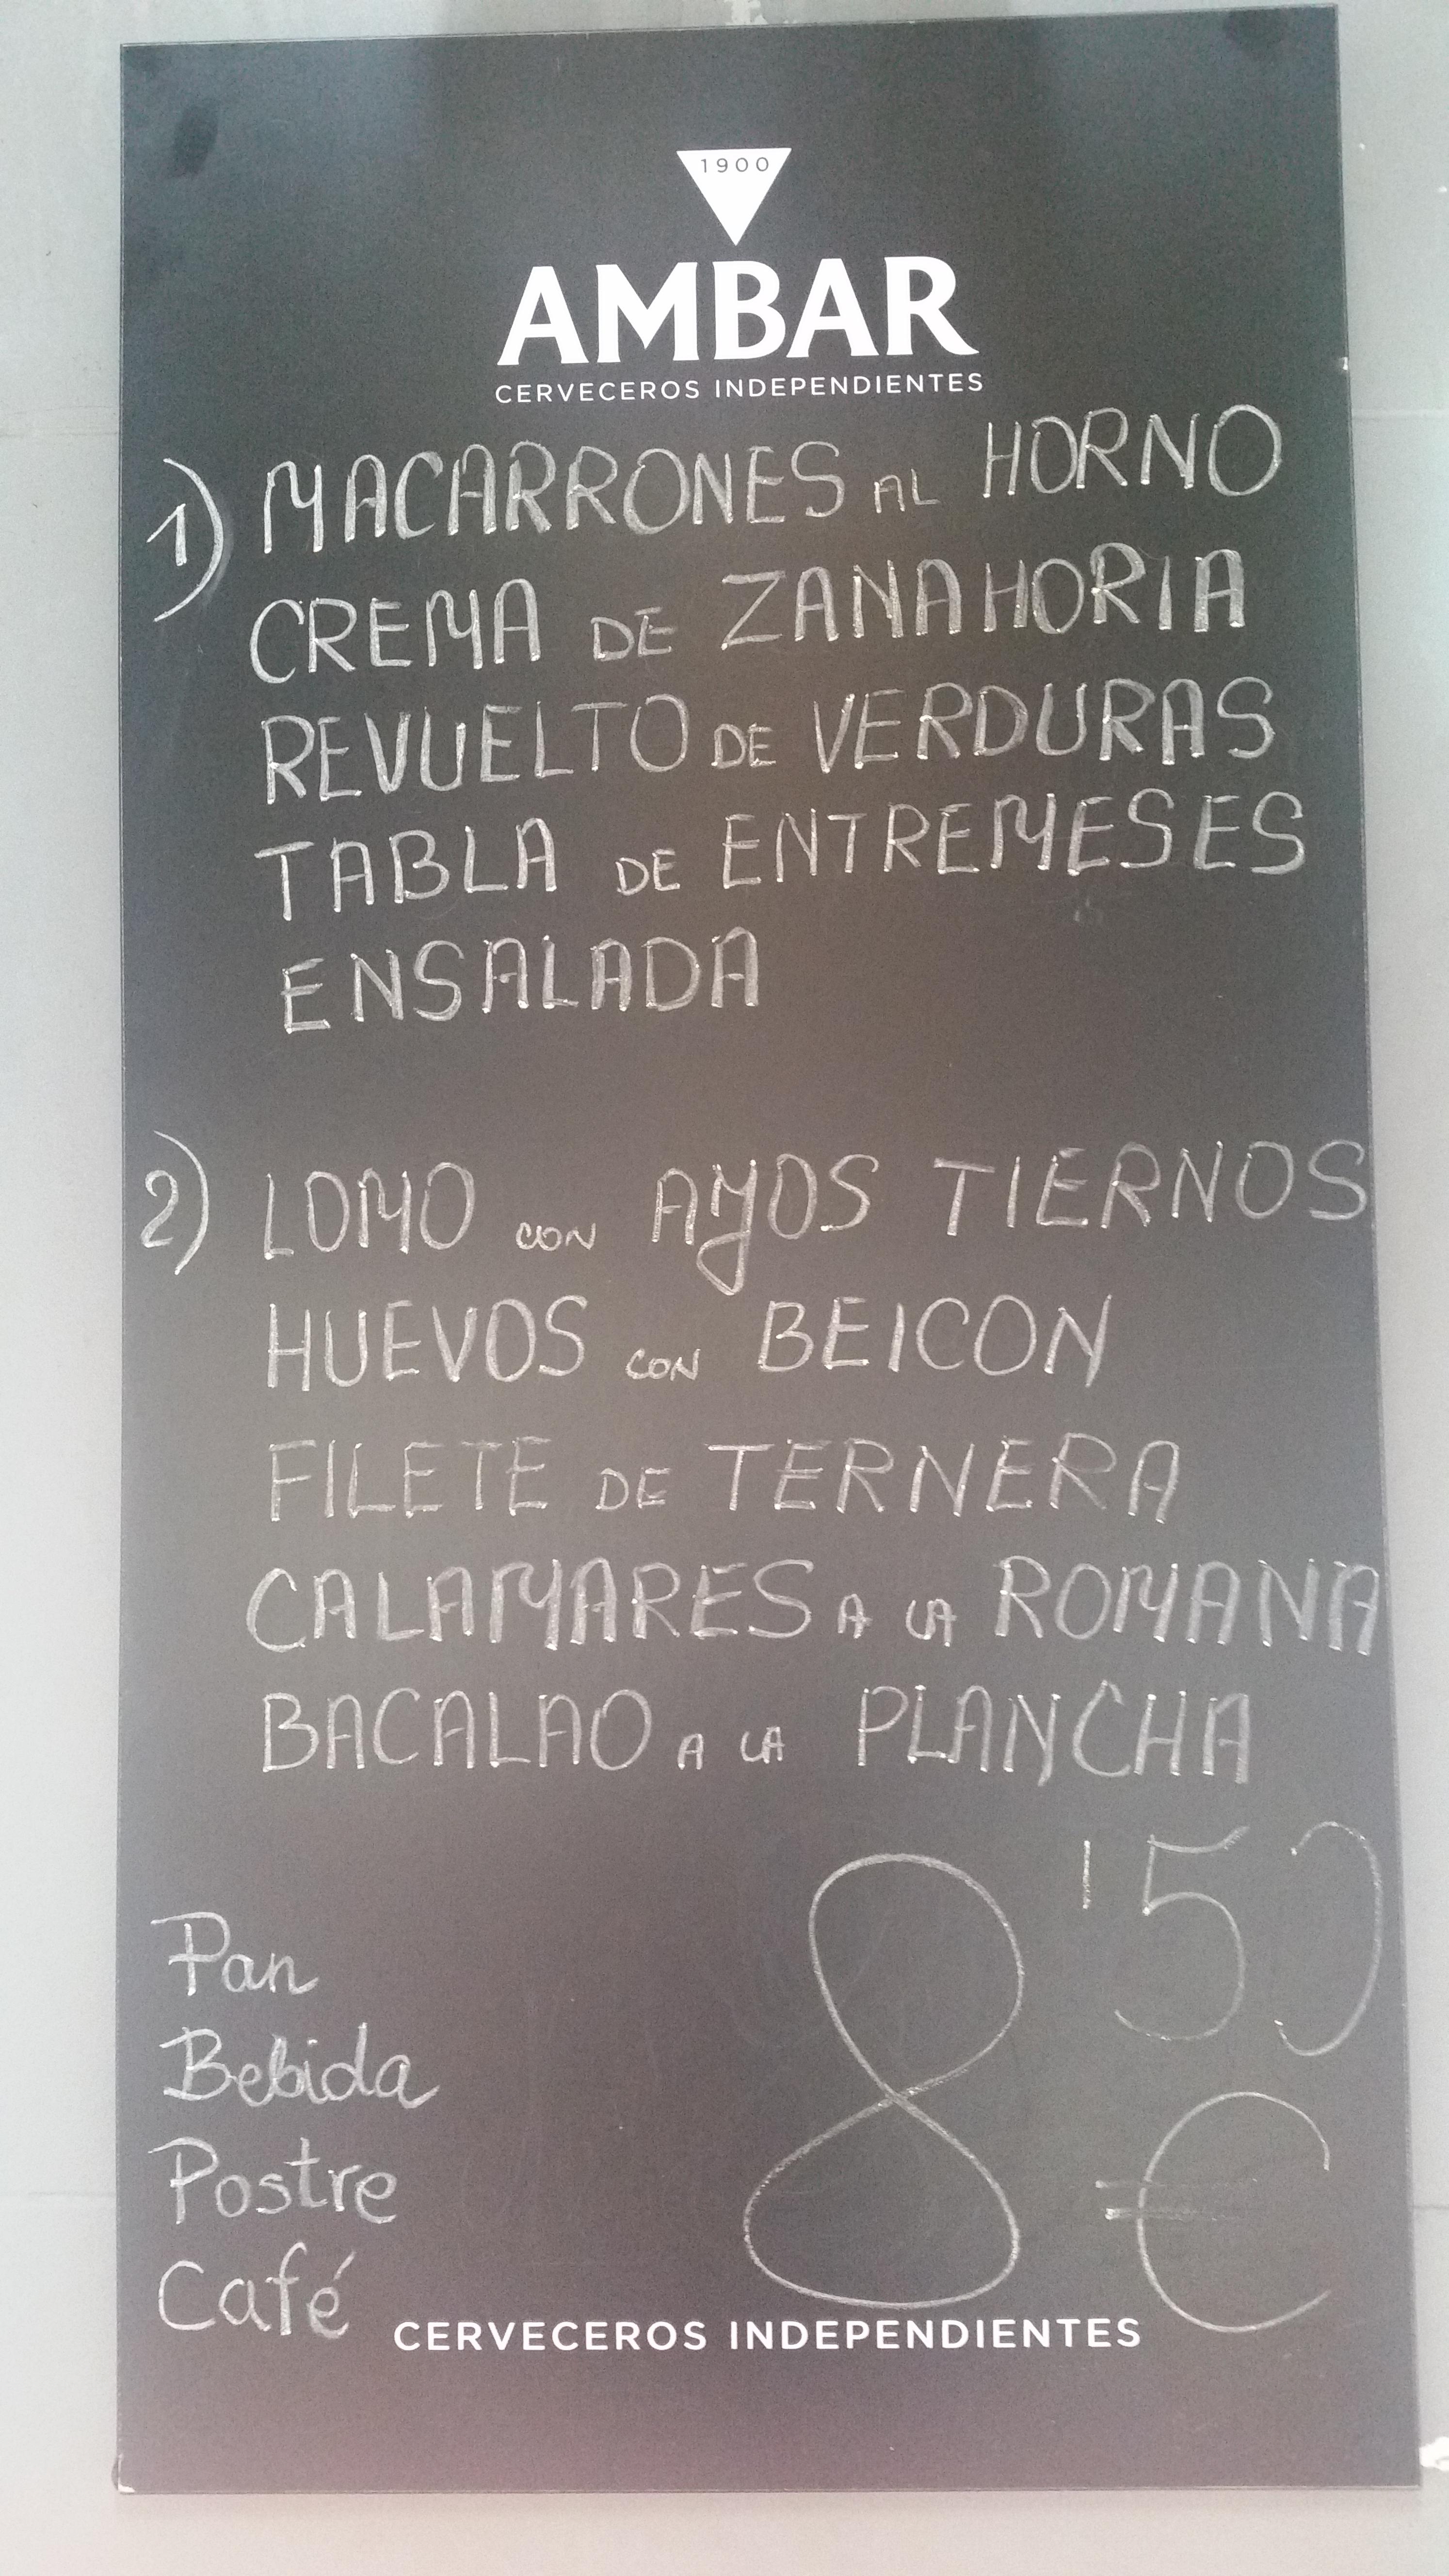 1900
AMBAR
CERVECEROS INDEPENDIENTES
1) MACARRONES AL HORNO
CREMA DE ZANAHORIA
REVUELTO DE VERDURAS
TABLA DE ENTREMESES
ENSALADA
2) LOMO CON AJOS TIERNOS
HUEVOS CON BEICON
FILETE DE TERNERA
CALAMARES A LA ROMANA
BACALAO A LA PLANCHA
8'50 €
Pan
Bebida
Postre
Café
CERVECEROS INDEPENDIENTES